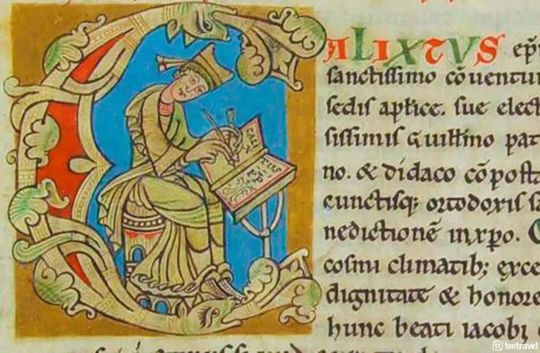 CALIXTVS ep̄
sanctissimo cōventu
sedis aplice. sue elect
sissimis Guillino pat
no. & didaco cōposta
cunctisq; ortodoxis
nedictionē in xpo.
cosmi climatib; exce
dignitate & honore
hunc beati iacobi
teetravel